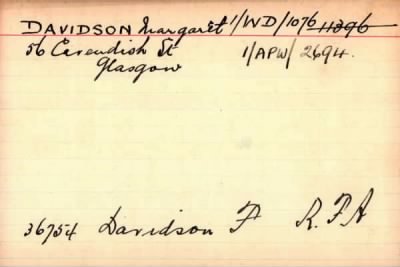 DAVIDSON Margaret 1/WD/1076 11396
56 Cavendish St 1/APW/2694.
Glasgow
36754 Davidson F R.F.A